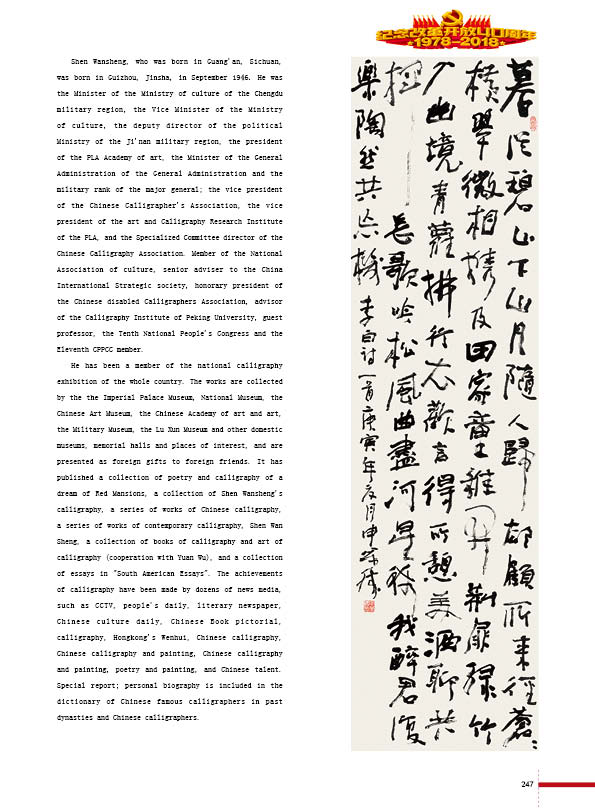 纪念改革开放40周年
1978-2018
Shen Wansheng, who was born in Guang'an, Sichuan,
was born in Guizhou, Jinsha, in September 1946. He was
the Minister of the Ministry of culture of the Chengdu
military region, the Vice Minister of the Ministry
of culture, the deputy director of the political
Ministry of the Ji'nan military region, the president
of the PLA Academy of art, the Minister of the General
Administration of the General Administration and the
military rank of the major general; the vice president
of the Chinese Calligrapher's Association, the vice
president of the art and Calligraphy Research Institute
of the PLA, and the Specialized Committee director of the
Chinese Calligraphy Association. Member of the National
Association of culture, senior adviser to the China
International Strategic society, honorary president of
the Chinese disabled Calligraphers Association, advisor
of the Calligraphy Institute of Peking University, guest
professor, the Tenth National People's Congress and the
Eleventh CPPCC member.
He has been a member of the national calligraphy
exhibition of the whole country. The works are collected
by the the Imperial Palace Museum, National Museum, the
Chinese Art Museum, the Chinese Academy of art and art,
the Military Museum, the Lu Xun Museum and other domestic
museums, memorial halls and places of interest, and are
presented as foreign gifts to foreign friends. It has
published a collection of poetry and calligraphy of a
dream of Red Mansions, a collection of Shen Wansheng's
calligraphy, a series of works of Chinese calligraphy,
a series of works of contemporary calligraphy, Shen Wan
Sheng, a collection of books of calligraphy and art of
calligraphy (cooperation with Yuan Wu), and a collection
of essays in "South American Essays". The achievements
of calligraphy have been made by dozens of news media,
such as CCTV, people's daily, literary newspaper,
Chinese culture daily, Chinese Book pictorial,
calligraphy, Hongkong's Wenhui, Chinese calligraphy,
Chinese calligraphy and painting, Chinese calligraphy
and painting, poetry and painting, and Chinese talent.
Special report; personal biography is included in the
dictionary of Chinese famous calligraphers in past
dynasties and Chinese calligraphers.
暮從碧山下山月隨人歸却顧所来徑蒼〻
橫翠微相攜及田家童稚開荆扉綠竹
入幽境青蘿拂行衣歡言得所憩美酒聊共
揮長歌吟松風曲盡河星稀我醉君復
樂陶然共忘機 李白詩一首庚寅年月申萬勝
247